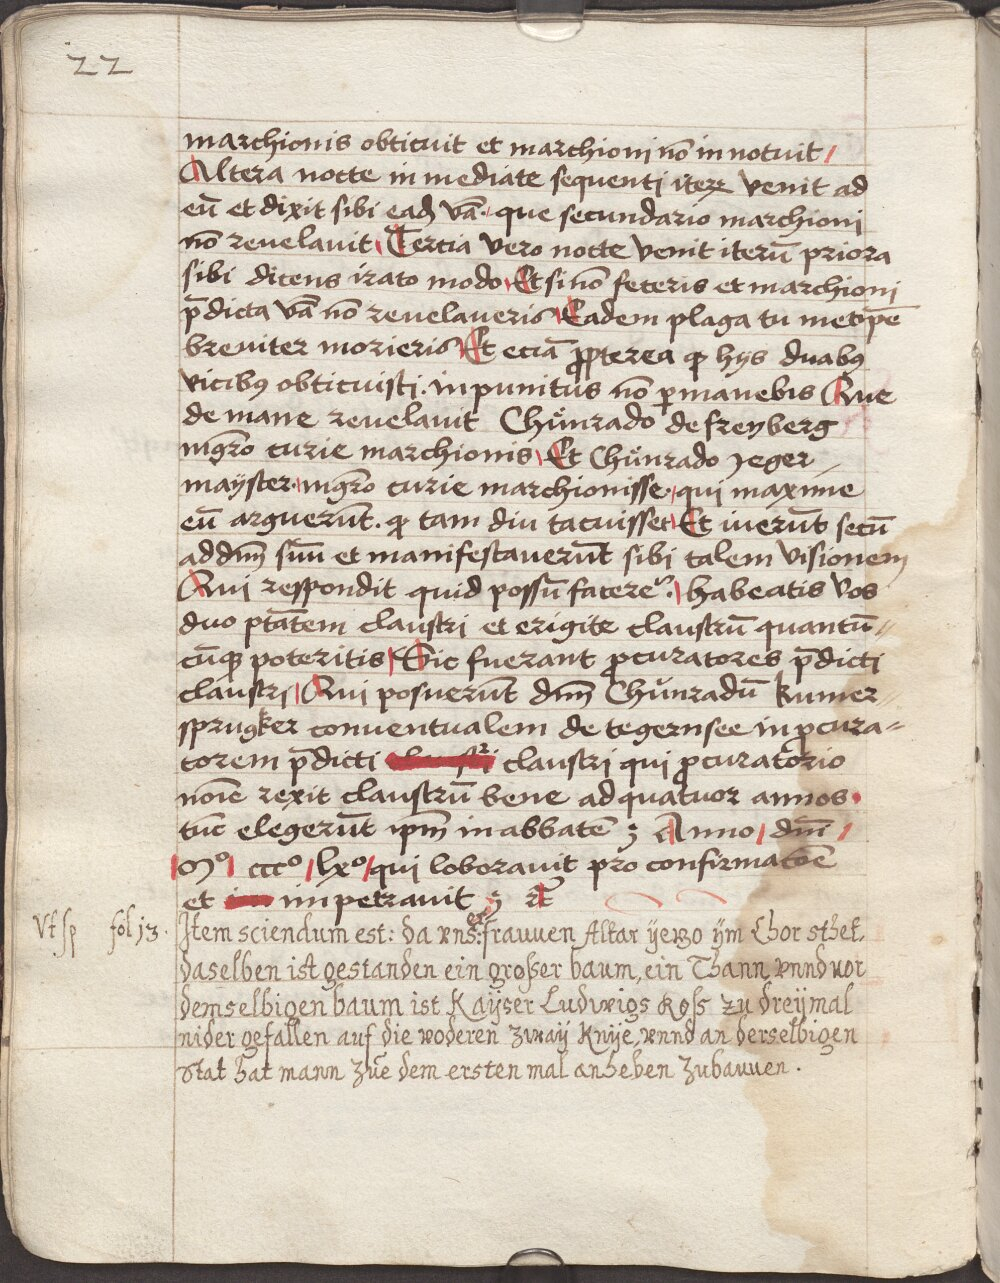 22
marchionis obticuit et marchioni nō in notuit
Altera nocte in mediate sequenti iteꝝ venit ad
eū et dixit sibi eadē v̄ba · que secundario marchioni
nō revelavit Tercia vero nocte venit iterū priora
sibi dicens irato modo Et si nō feceris et marchioni
p̄dicta v̄ba nō revelaveris Eadem plaga tu met ip̄e
breviter morieris Et eciā ꝓpterea ꝙ hys duabꝯ
vicibꝯ obticuisti . in punitus nō ꝑmanebis Que
de mane revelavit Chůnrado de freyberg
mgr̄o curie marchionis Et Chůnrado jeger
mayster · mgr̄o curie marchionisse · qui maxime
eū arguerūt . ꝙ tam diu tacuisset Et iverūt secū
ad dn̄m suū et manifestaverūt sibi talem visionem
Qui respondit quid possū facere ? habeatis vos
duo ptātem claustri et erigite claustrū quantū=
cūqꝫ poteritis Sic fuerant ꝓcuratores p̄dicti
claustri Qui posuerūt dn̄m Chůnradū kumer=
sprugker conventualem de tegernsee in ꝓcura=
torem p̄dicti claustri claustri qui ꝓcuratorio
noīe rexit claustrū bene ad quatuor annos
tūc elegerūt ip̄m in abbatē ʒ Anno dn̄i
Mº cccº lxº qui loboravit pro confirmacōe
et impetravit ʒ
Vt sp fol 13 .
Item sciendum est: da vnser frauuen Altar yeczo ym Chor sthet,
daselben ist gestanden ein großer baum, ein Thann vnnd vor
demselbigen baum ist Kayser Ludwigs Roß zu dreymal
nider gefallen auf die voderen zway Knye, vnnd an derselbigen
stat hat mann zue dem ersten mal anheben zubauuen .